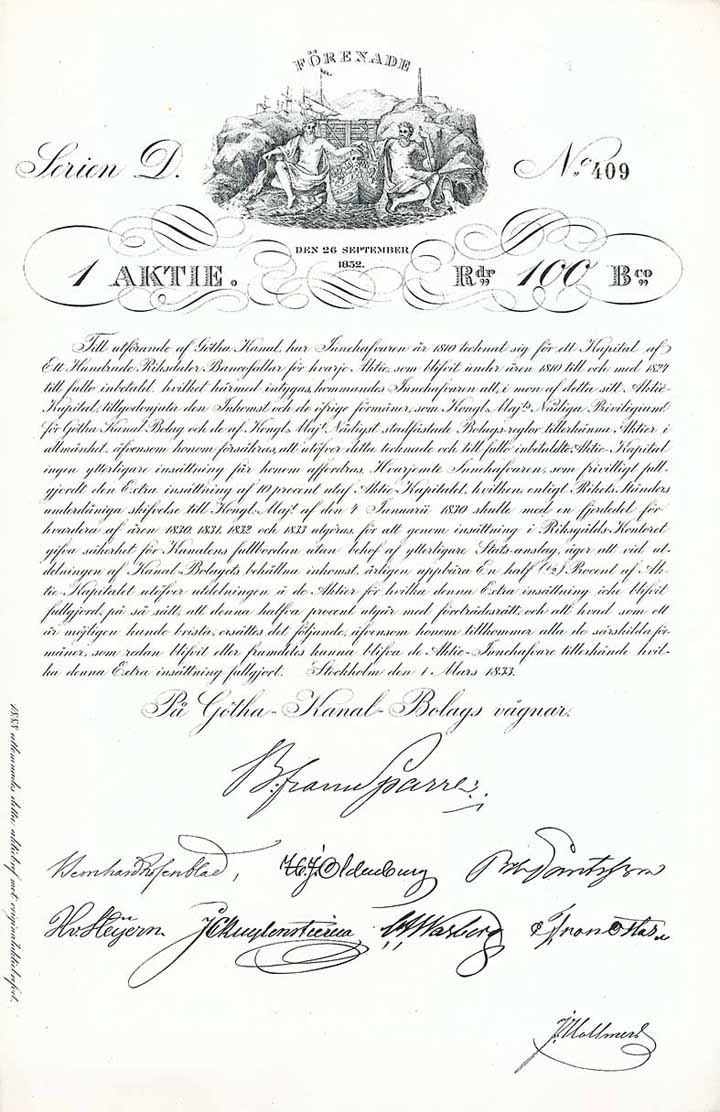 FÖRENADE
Serien D.
N.o 409
DEN 26 SEPTEMBER
1832.
1 AKTIE.
Rdr 100 Bco
Till utförande af Götha Kanal, har Innehafvaren år 1810 technat sig för ett Kapital af
Ett Hundrade Riksdaler Bancosedlar för hvarje Aktie, som blifvit under åren 1810 till och med 1827
till fullo inbetald, hvilket härmed intygas, kommandes Innehafvaren att, i mon af detta sitt Aktie
Kapital, tillgodonjuta den Inkomst och de öfrige förmåner, som Kongl. Maj:ts Nådiga Privilegium
för Götha Kanal Bolag och de af Kongl. Maj:t Nådigst stadfästade Bolags-reglor tillerkänna Aktier i
allmänhet, äfvensom honom försäkras, att utöfver detta technade och till fullo inbetaldte Aktie-Kapital
ingen ytterligare insättning får honom affordras. Hvarjemte Innehafvaren, som frivilligt full-
gjordt den Extra insättning af 10 procent utaf Aktie-Kapitalet, hvilken enligt Rikets Ständers
underdåniga skrifvelse till Kongl. Maj:t af den 4 Januarii 1830 skulle med en fjerdedel för
hvardera af åren 1830, 1831, 1832 och 1833 utgöras, för att genom insättning i Riksgälds-Kontoret
gifva säkerhet för Kanalens fullbordan utan behof af ytterligare Stats-anslag, äger att vid ut-
delningen af Kanal-Bolagets behållna inkomst, årligen uppbära En half (1/2) Procent af Ak-
tie-Kapitalet utöfver utdelningen å de Aktier för hvilka denna Extra insättning icke blifvit
fullgjord, på så sätt, att denna halfva procent utgår med företrädesrätt, och att hvad som ett
år möjligen kunde brista, ersättes det följande, äfvensom honom tillkommer alla de särskilda för-
måner, som redan blifvit eller framdeles kunna blifva de Aktie-Innehafvare tillerkände hvil-
ka denna Extra insättning fullgjort. Stockholm den 1 Mars 1833.
På Götha-Kanal-Bolags vägnar.
B. from Sparre
Bernhard Rosenblad, H. J. Oldenburg
H. v. Heijern
Warberg
J. Hollmert
1888 utlemnades detta aktiebref mot originalaktiebrefvet.